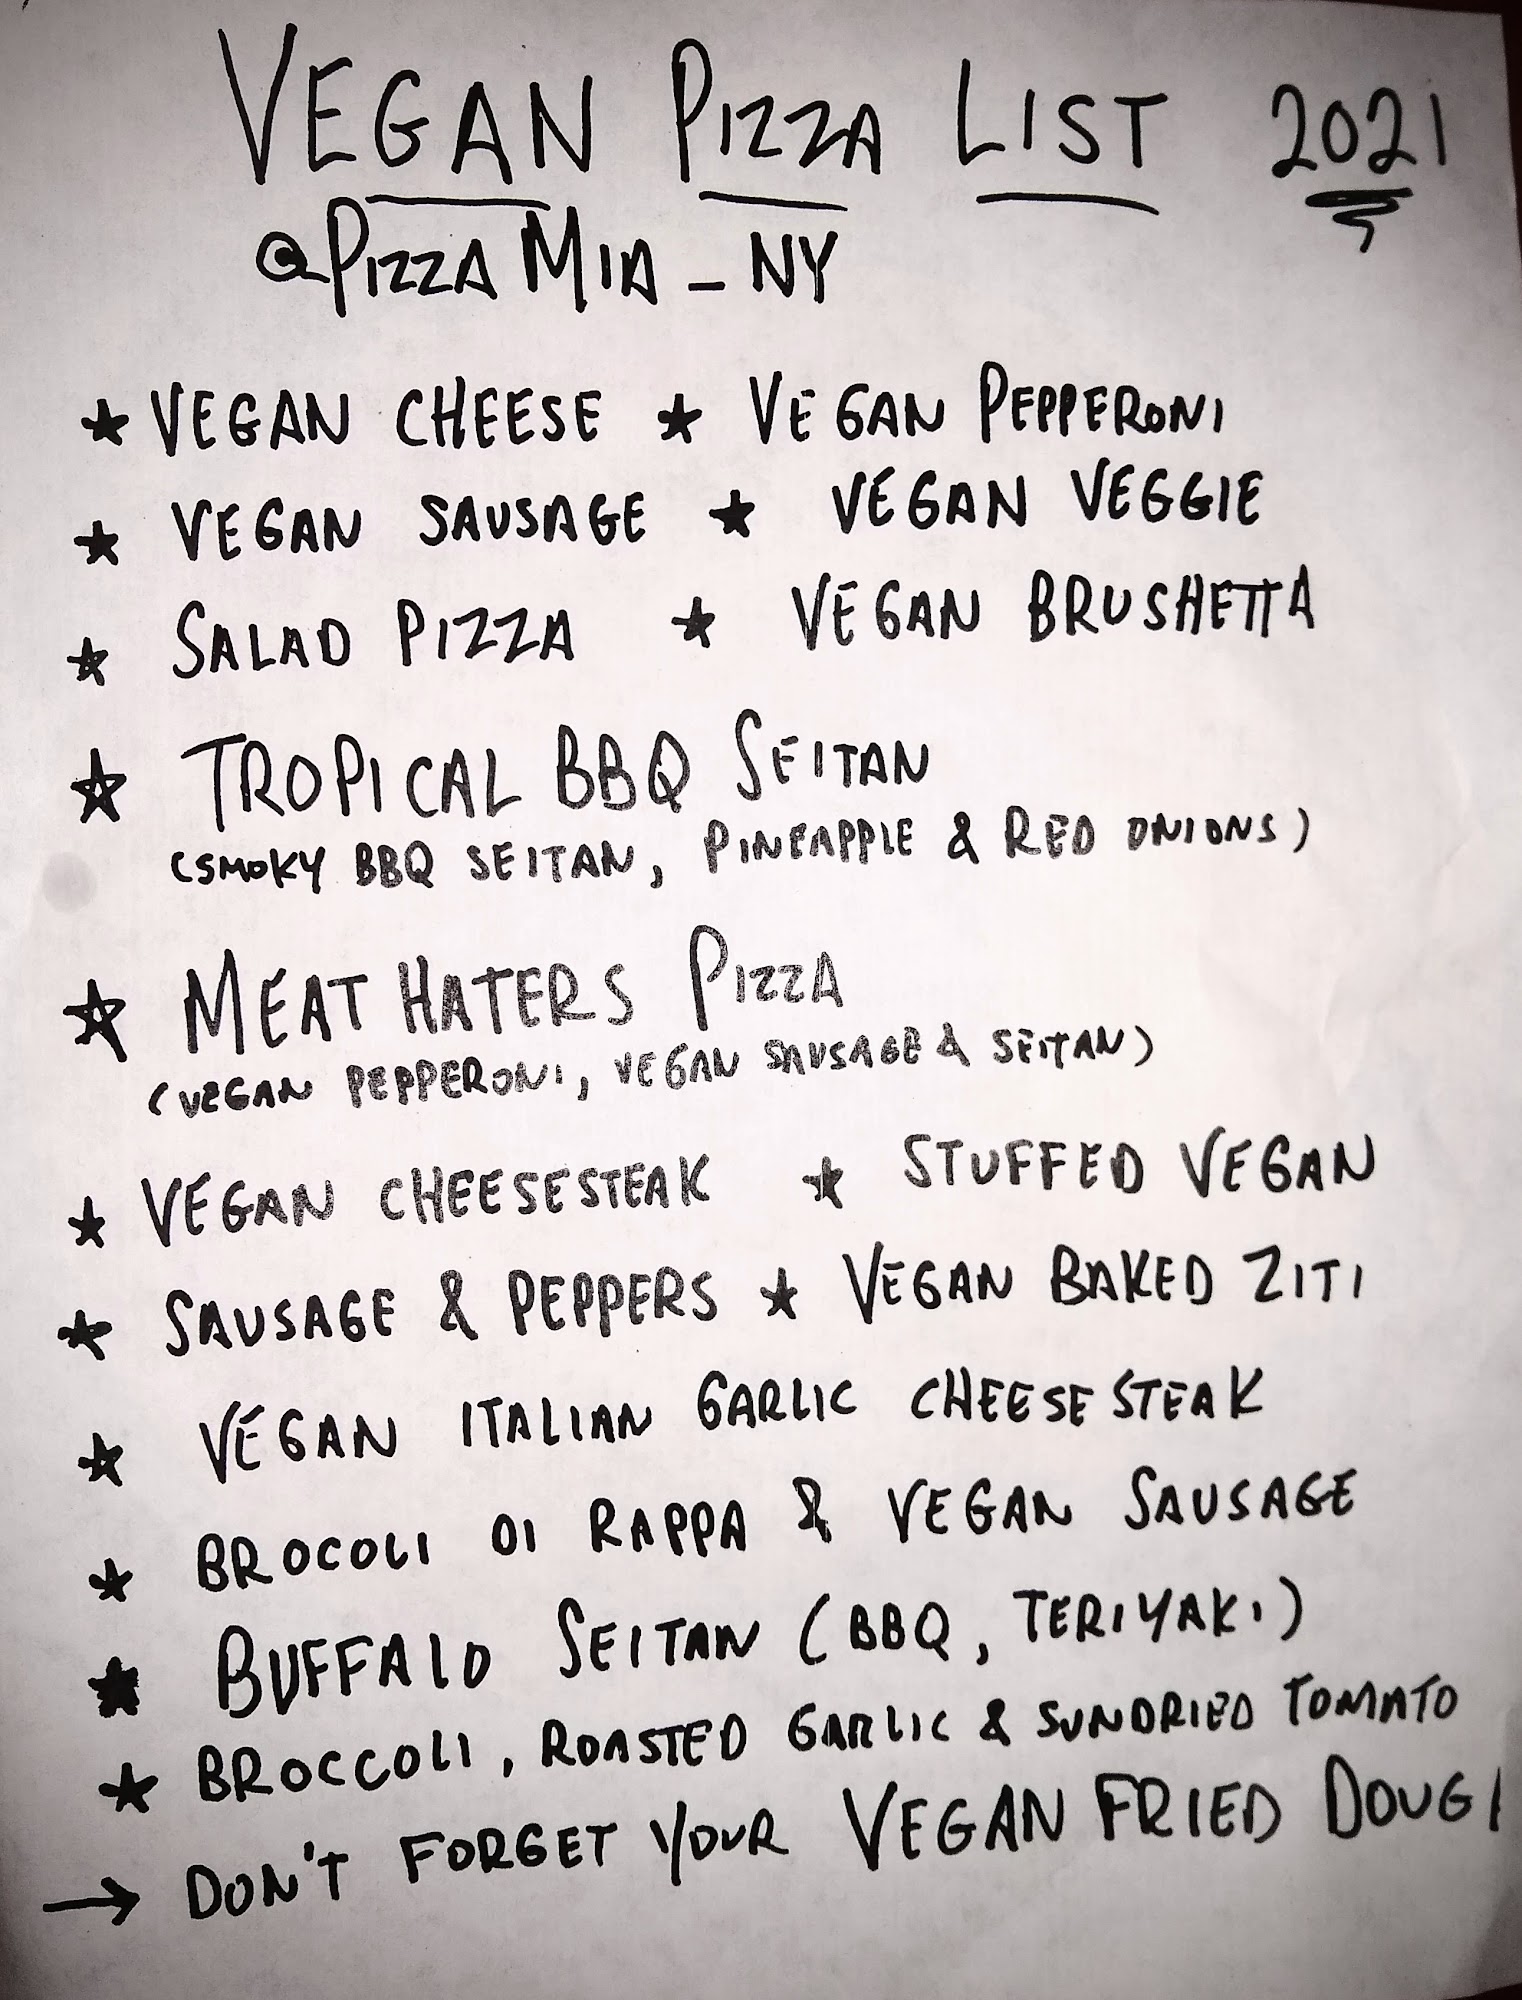 VEGAN PIZZA LIST 2021
@PIZZAMIA_NY
★ VEGAN CHEESE ★ VEGAN PEPPERONI
★ VEGAN SAUSAGE ★ VEGAN VEGGIE
★ SALAD PIZZA ★ VEGAN BRUSHETTA
★ TROPICAL BBQ SEITAN
(SMOKY BBQ SEITAN, PINEAPPLE & RED ONIONS)
★ MEAT HATERS PIZZA
(VEGAN PEPPERONI, VEGAN SAUSAGE & SEITAN)
★ VEGAN CHEESESTEAK ★ STUFFED VEGAN
★ SAUSAGE & PEPPERS ★ VEGAN BAKED ZITI
★ VEGAN ITALIAN GARLIC CHEESESTEAK
★ BROCOLI DI RAPPA & VEGAN SAUSAGE
★ BUFFALO SEITAN (BBQ, TERIYAKI)
★ BROCCOLI, ROASTED GARLIC & SUNDRIED TOMATO
→ DON'T FORGET YOUR VEGAN FRIED DOUG